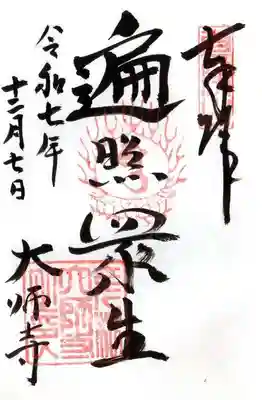 奉拝
遍照衆生
令和七年
十二月七日
大師寺